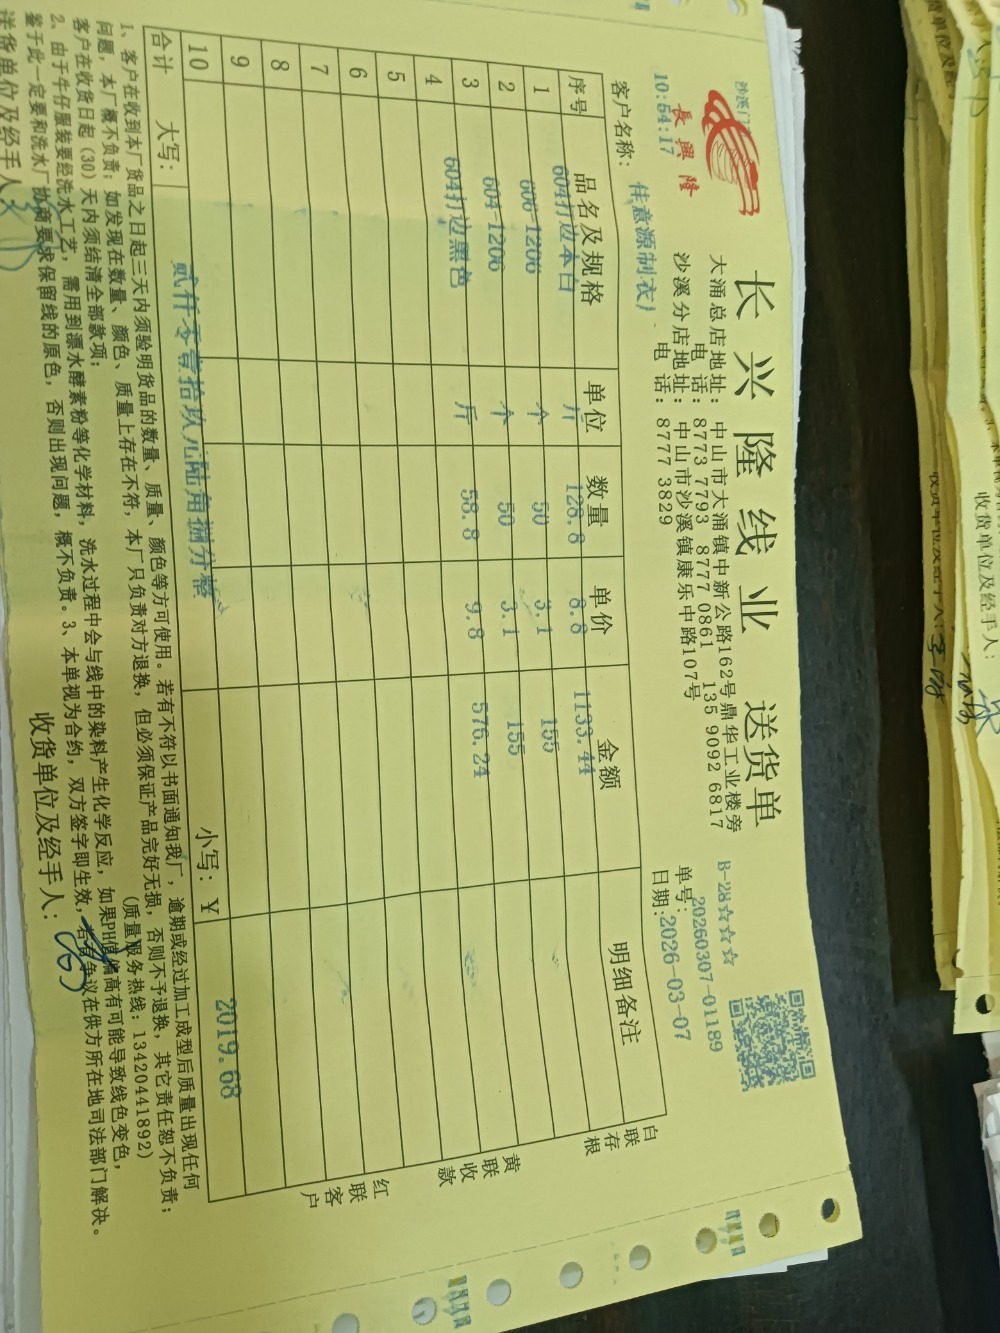 沙溪门
長興隆
10:54:17
长兴隆线业 送货单
大涌总店地址：中山市大涌镇中新公路162号鼎华工业楼旁
电 话：8773 7793 8777 0861 135 9092 6817
沙溪分店地址：中山市沙溪镇康乐中路107号
电 话：8777 3829
B-28☆☆☆
单号：20260307-01189
日期：2026-03-07
客户名称：佳意源制衣厂
序号 品名及规格 单位 数量 单价 金额 明细备注
1 604打边本白 斤 128.8 8.8 1133.44
2 606-1206 个 50 3.1 155
3 604-1206 个 50 3.1 155
4 604打边黑色 斤 58.8 9.8 576.24
5
6
7
8
9
10
合计 大写：贰仟零壹拾玖元陆角捌分整 小写：￥ 2019.68
白联存根
黄联收款
红联客户
1、客户在收到本厂货品之日起三天内须验明货品的数量、质量、颜色等方可使用。若有不符以书面通知我厂，逾期或经过加工成型后质量出现任何
问题，本厂概不负责；如发现在数量、颜色、质量上存在不符，本厂只负责对方退换，但必须保证产品完好无损，否则不予退换，其它责任恕不负责；
客户在收货日起（30）天内须结清全部款项；
(质量服务热线：13420441892)
2、由于牛仔服装要经洗水工艺，需用到漂水酵素粉等化学材料，洗水过程中会与线中的染料产生化学反应，如果PH值偏高有可能导致线色变色，
鉴于此一定要和洗水厂协商要求保留线的原色，否则出现问题，概不负责。3、本单视为合约，双方签字即生效，若有争议在供方所在地司法部门解决。
送货单位及经手人：
收货单位及经手人：
收货单位及经手人：
收货单位及经手人：